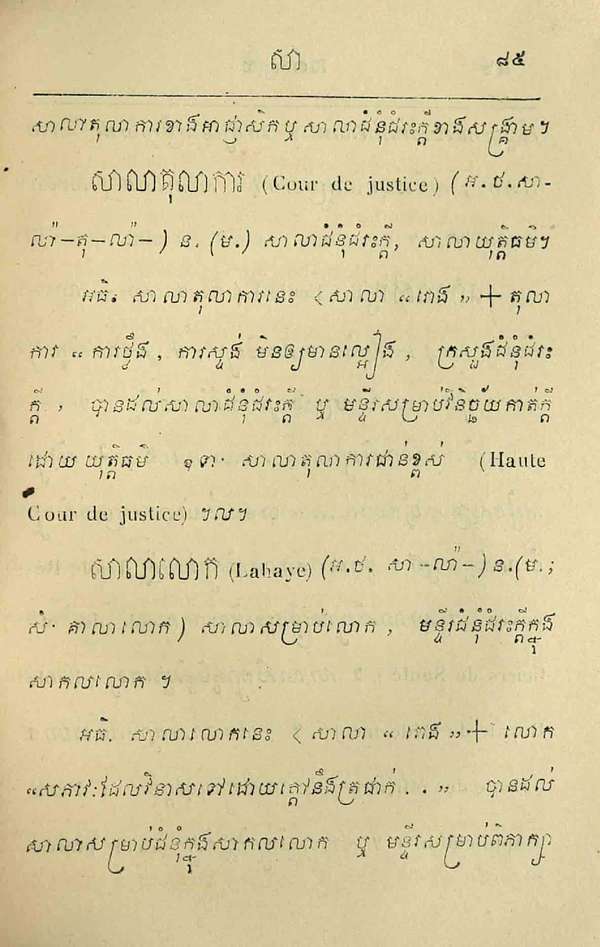 សា ៨៥
សាលាតុលាការខាងអាជ្ញាសឹកឬ សាលាជំនុំជំរះក្តីខាងសង្គ្រាម។
សាលាតុលាការ (Cour de justice) (អ.ថ.សា-
លា៉-តុ-លា៉-) ន. (ម.) សាលាជំនុំជំរះក្តី, សាលាយុត្តិធម៌។
អធិ. សាលាតុលាការនេះ < សាលា «រោង» + តុលា
ការ «ការថ្លឹង, ការស្ទង់ មិនឲ្យមានល្អៀង, ក្រសួងជំនុំជំរះ
ក្តី, បានដល់សាលាជំនុំជំរះក្តី ឬ មន្ទីរសម្រាប់វិនិច្ឆ័យកាត់ក្តី
ដោយយុត្តិធម៌ ឧទា· សាលាតុលាការជាន់ខ្ពស់ (Haute
Cour de justice) ។ល។
សាលាលោក (Lahaye) (អ.ថ. សា-លា៉-) ន.(ម.;
សំ· គាលាលោក) សាលាសម្រាប់លោក, មន្ទីរជំនុំជំរះក្តីក្នុង
សាកលលោក ។
អធិ. សាលាលោកនេះ < សាលា «រោង» + លោក
«សភាវៈដែលវិនាសទៅដោយក្តៅនឹងត្រជាក់...» បានដល់
សាលាសម្រាប់ជំនុំក្នុងសាកលលោក ឬ មន្ទីរសម្រាប់ពិភាក្សា